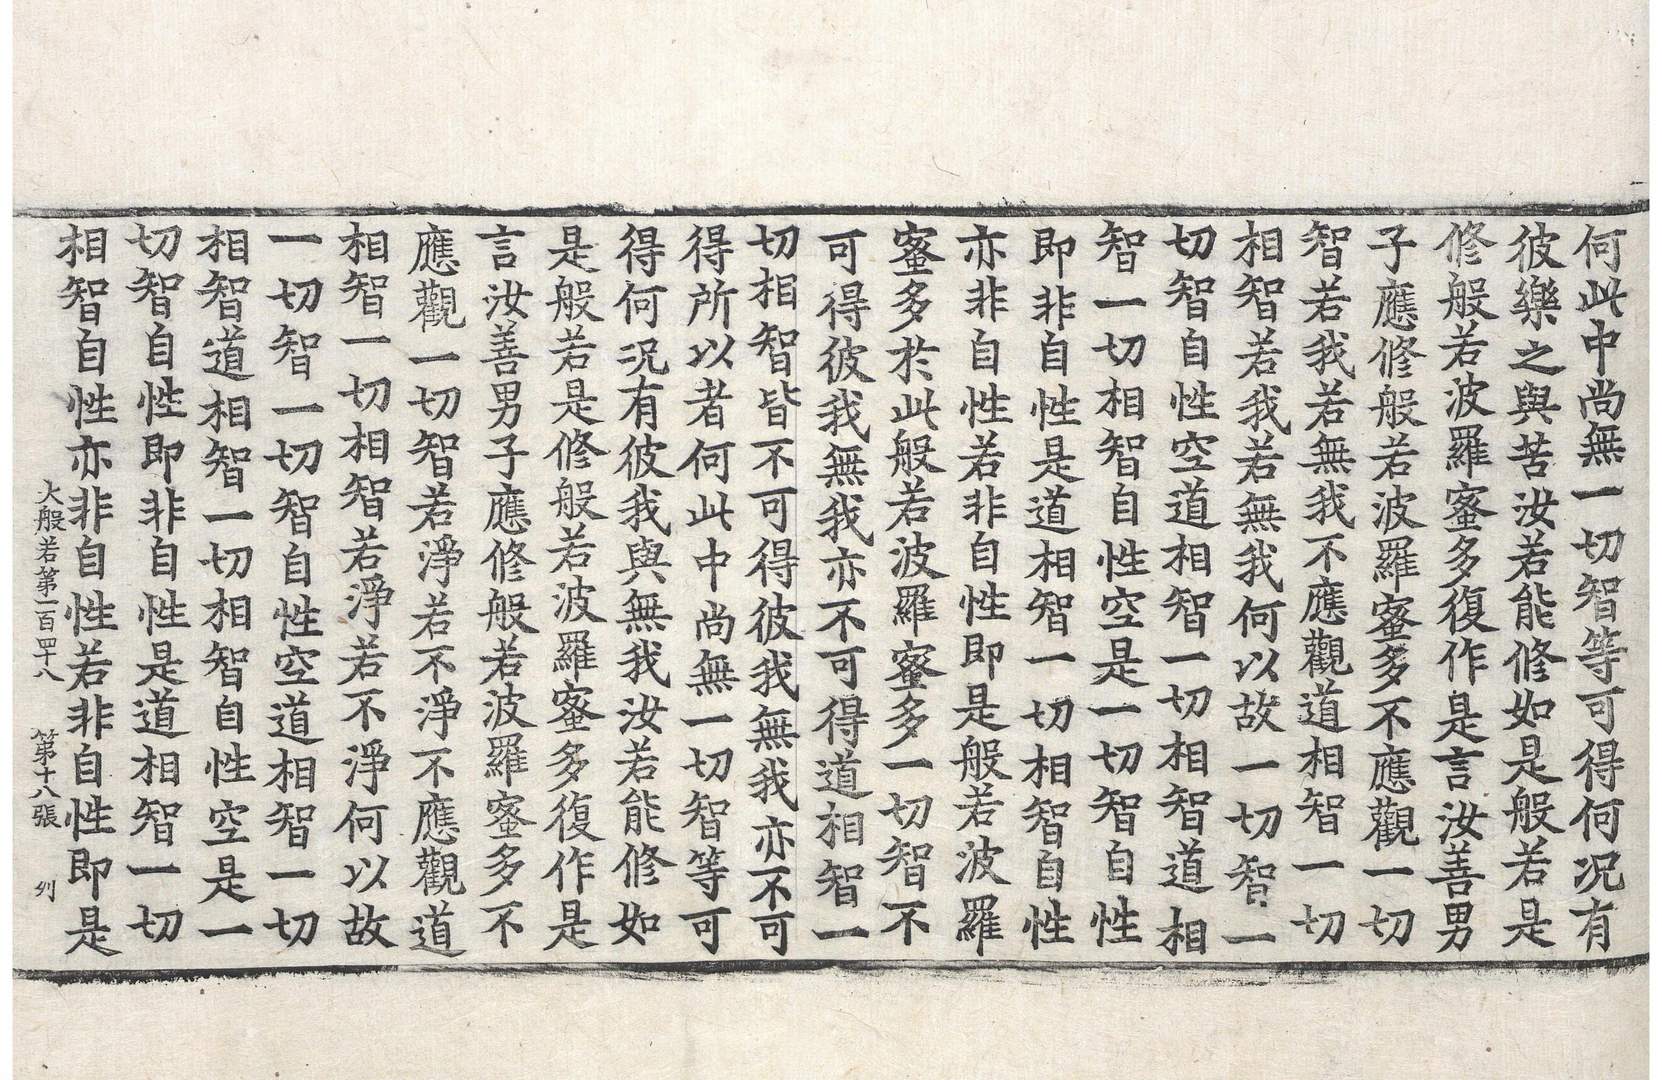 何此中尚無一切智等可得何況有
彼樂之與苦汝若能修如是般若是
修般若波羅蜜多復作是言汝善男
子應修般若波羅蜜多不應觀一切
智若我若無我不應觀道相智一切
相智若我若無我何以故一切智一
切智自性空道相智一切相智道相
智一切相智自性空是一切智自性
即非自性是道相智一切相智自性
亦非自性若非自性即是般若波羅
蜜多於此般若波羅蜜多一切智不
可得彼我無我亦不可得道相智一
切相智皆不可得彼我無我亦不可
得所以者何此中尚無一切智等可
得何況有彼我與無我汝若能修如
是般若是修般若波羅蜜多復作是
言汝善男子應修般若波羅蜜多不
應觀一切智若淨若不淨不應觀道
相智一切相智若淨若不淨何以故
一切智一切智自性空道相智一切
相智道相智一切相智自性空是一
切智自性即非自性是道相智一切
相智自性亦非自性若非自性即是
大般若第一百四十八 第十八張 列